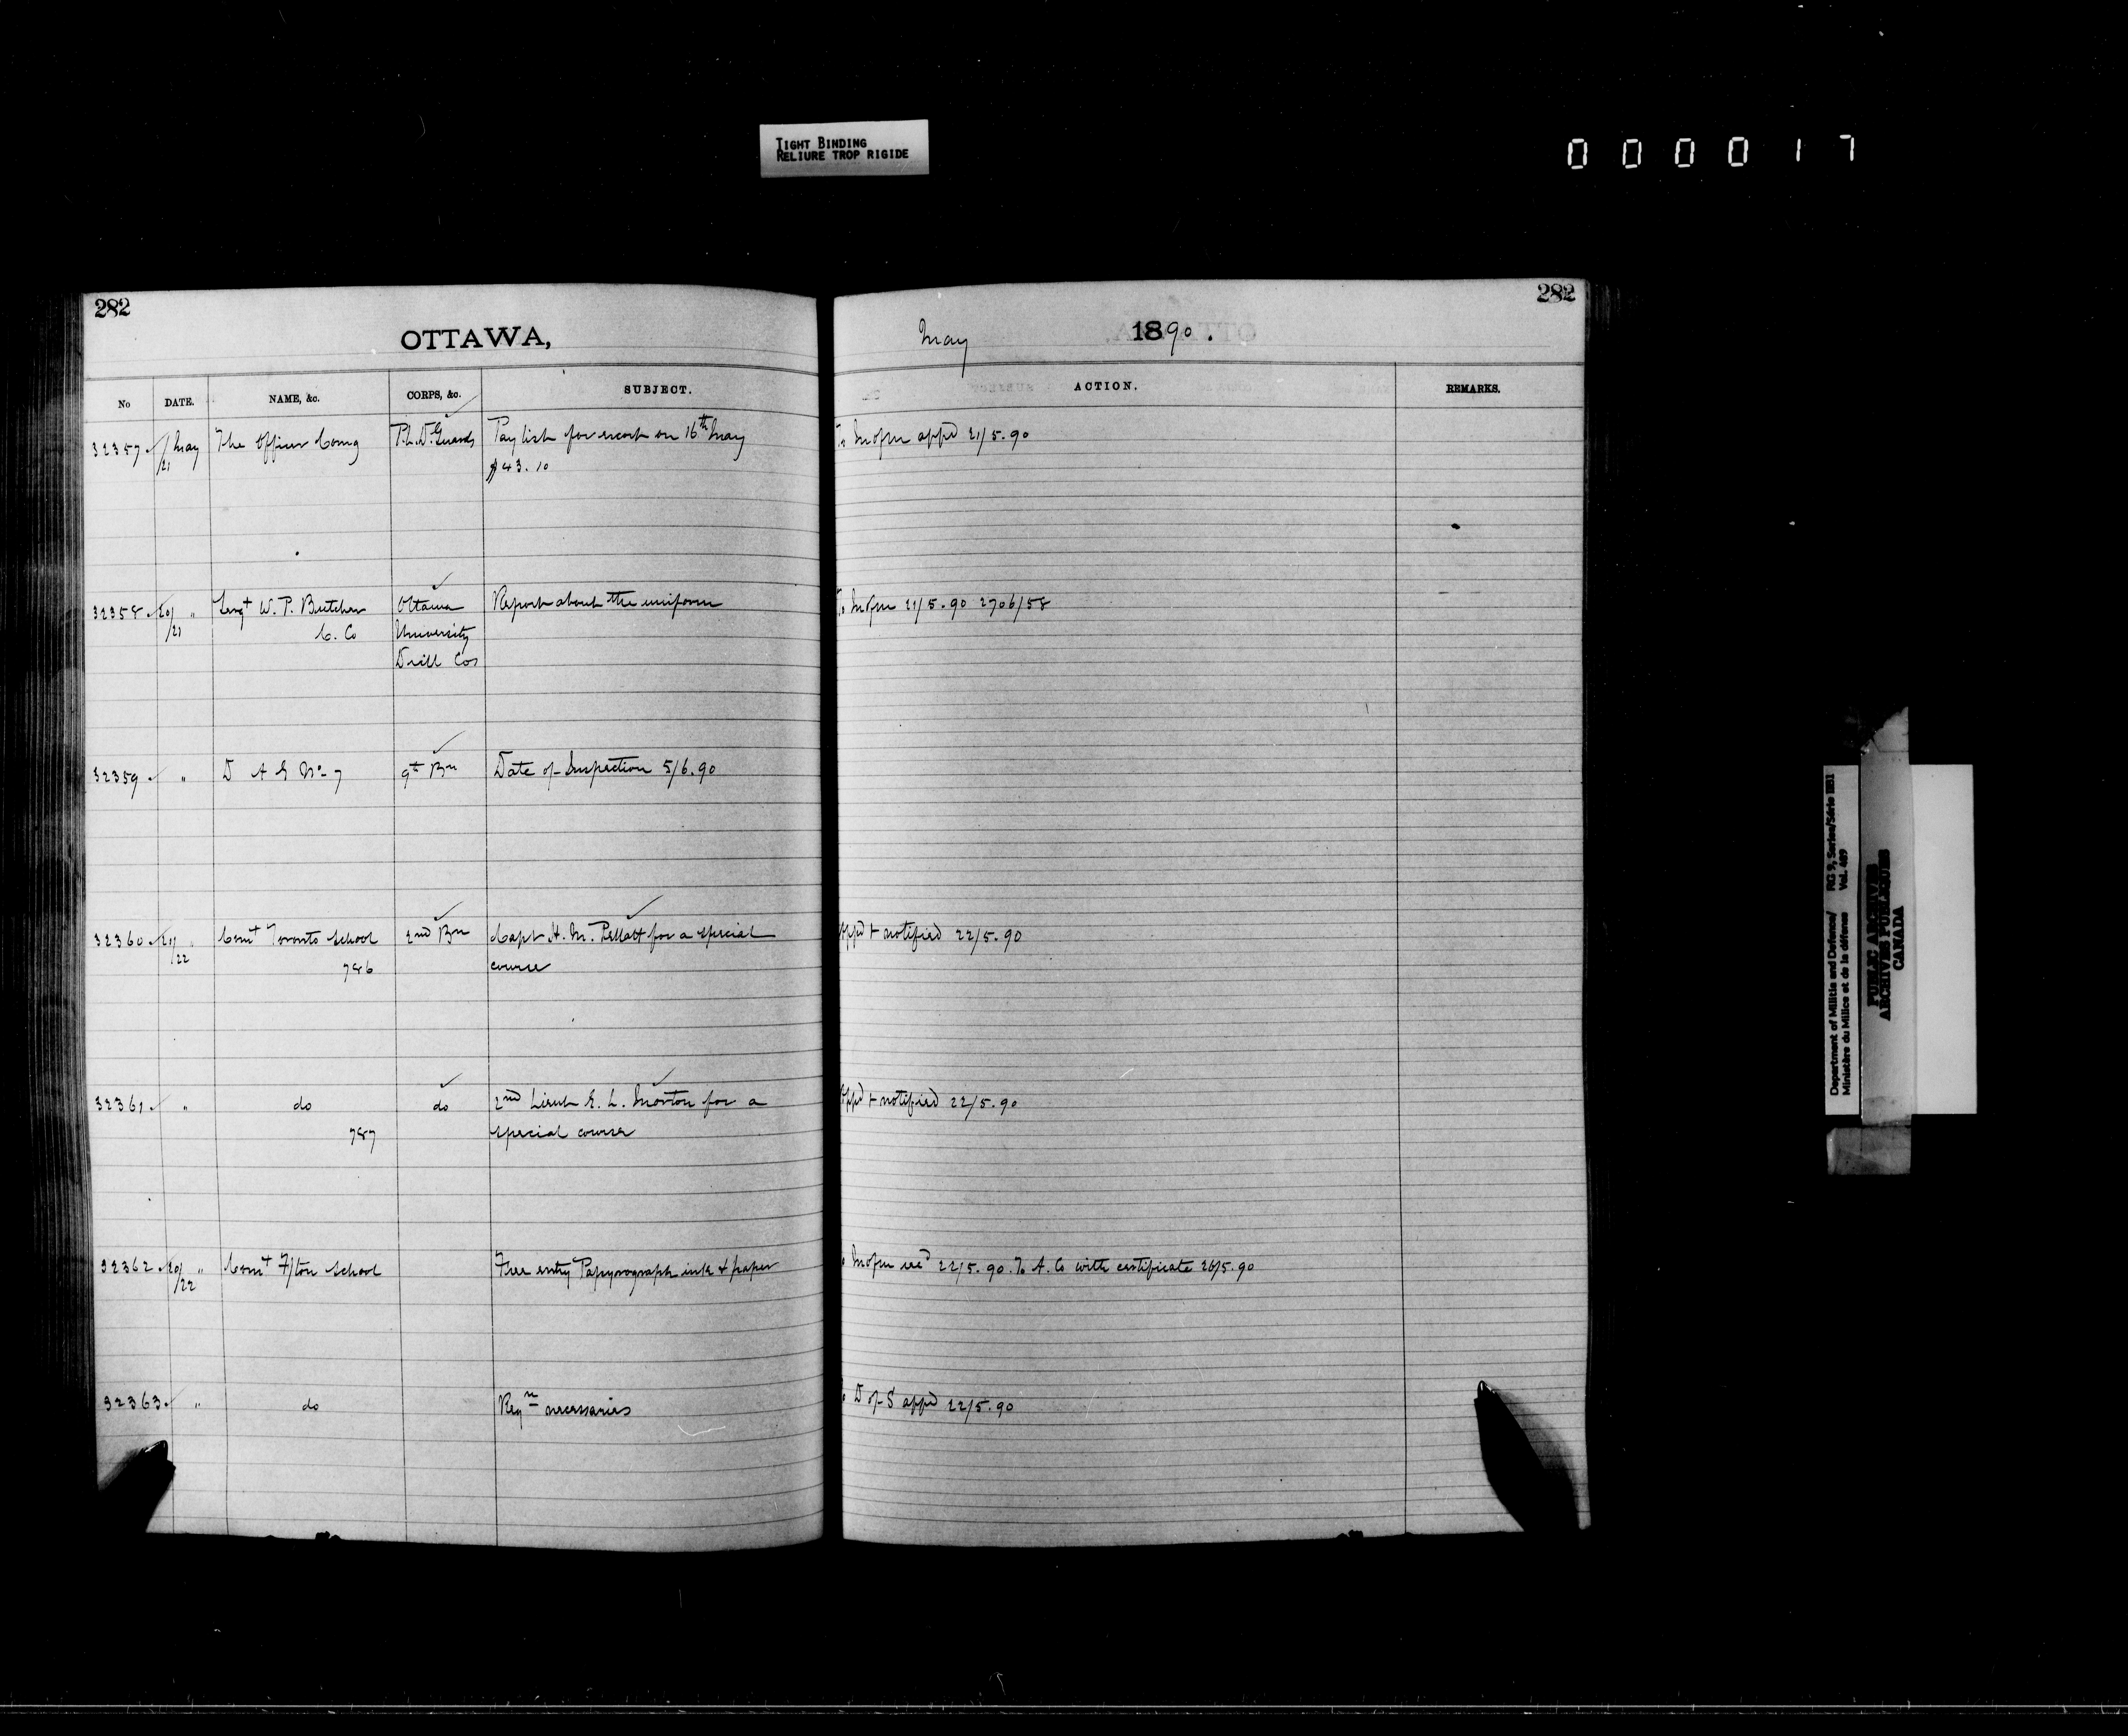 TIGHT BINDING
RELIURE TROP RIGIDE
000017
282
282
OTTAWA,
May 1890.
No DATE. NAME, &c. CORPS, &c. SUBJECT. ACTION. REMARKS.
32357 May The Officer Comg P.L.D. Guards Pay list for escort on 16th May To M of m appd 21/5.90
/21 $43.10
32358 20/ " Sergt W. P. Butcher Ottawa Report about the uniform To M of m 21/5.90 2706/58
/21 C. Co University
Drill Cos
32359 " D A G No 7 9th Bn Date of Inspection 5/6.90
32360 21/ " Comt Toronto School 2nd Bn Capt H. M. Pellatt for a special Appd + notified 22/5.90
/22 786 course
32361 " do do 2nd Lieut E. L. Morton for a Appd + notified 22/5.90
787 special course
32362 20/ " Comt F/ton School Free entry Papyrograph ink & paper M of m 22/5.90. To A. Co with certificate 26/5.90
/22
32363 " do Reqn necessaries D of S appd 22/5.90
Department of Militia and Defence/ RG 9, Series/Série IIB1
Ministère du Milice et de la défense Vol. 469
PUBLIC ARCHIVES
ARCHIVES PUBLIQUES
CANADA